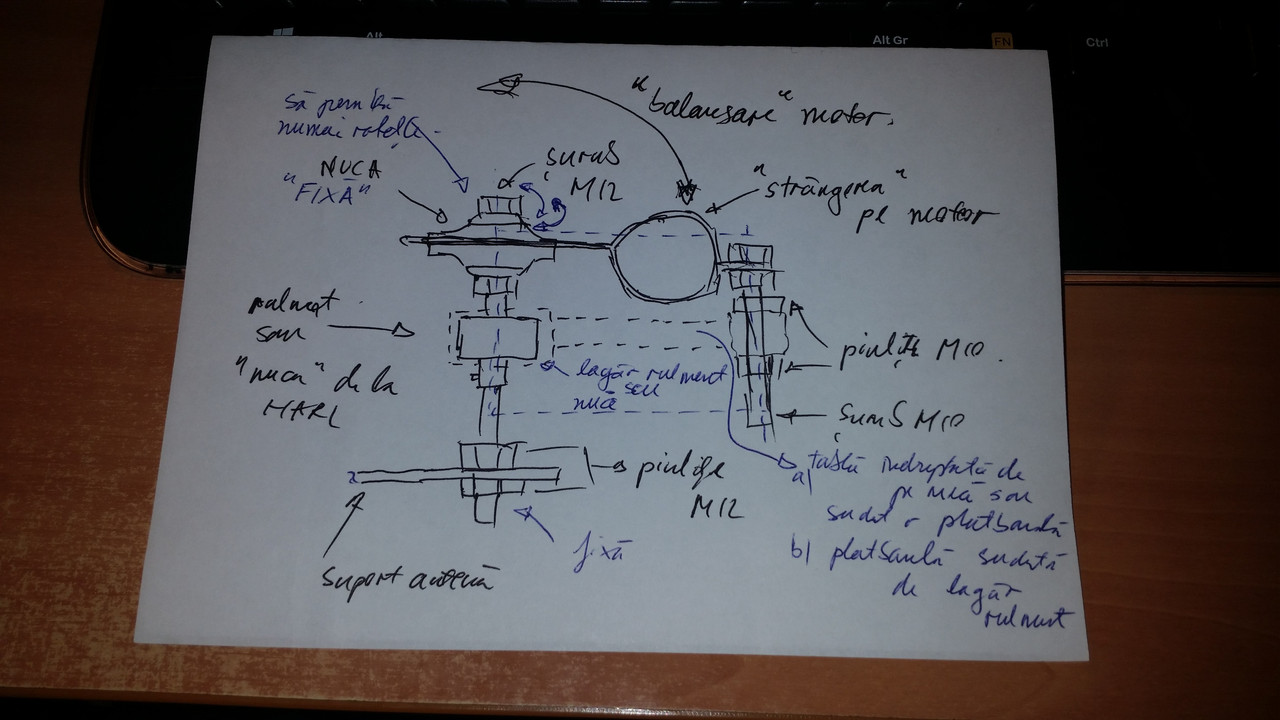 Alt
Alt Gr
FN
Ctrl
să permită
numai rotație
NUCA
"FIXĂ"
șurub
M12
"balansare" motor.
"strângerea"
pe motor
rulment
sau
"nuca" de la
lagăr rulment
sau
nucă
piulițe M10.
șurub M10
piulițe
M12
fixă
suport antenă
a) tablă îndreptată de
pe nucă sau
sudat o platbandă
b) platbandă sudată
de lagăr
rulment